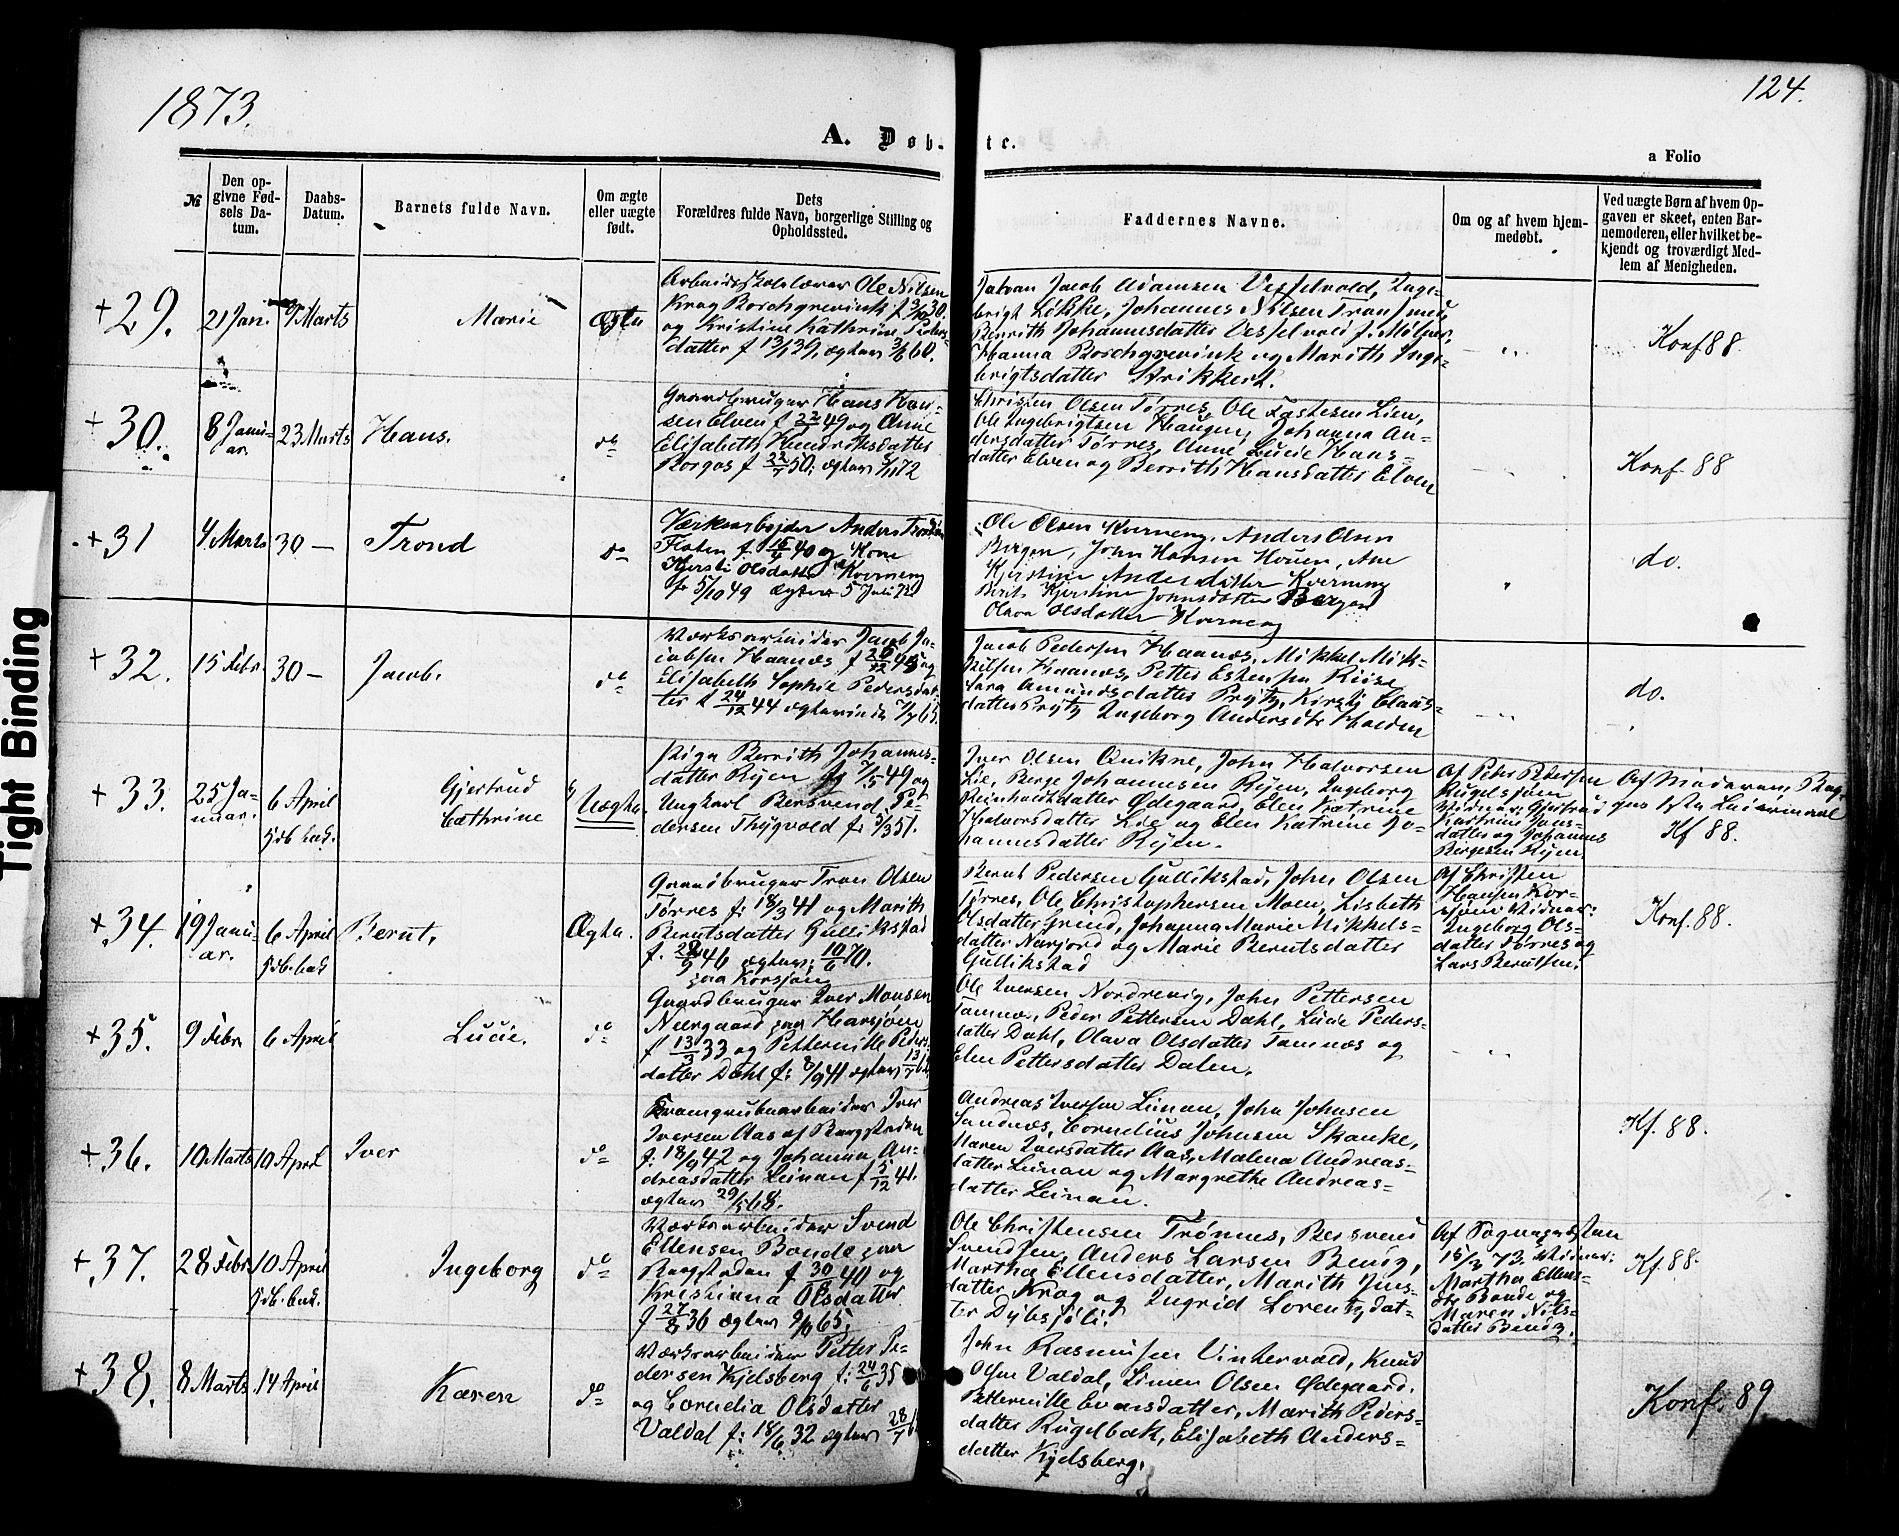 1873.
124.
A. Døb-
te.
a Folio
№
Den op-
givne Fød-
sels Da-
tum.
Daabs-
Datum.
Barnets fulde Navn.
Om ægte
eller uægte
født.
Dets
Forældres fulde Navn, borgerlige Stilling og
Opholdssted.
Faddernes Navne.
Om og af hvem hjem-
medøbt.
Ved uægte Børn af hvem Op-
gaven er skeet, enten Bar-
nemoderen, eller hvilket be-
kjendt og troværdigt Med-
lem af Menigheden.
+ 29.
21 Jan.
9 Marts
Marie
Ægte
Arbeids Skolelærer Ole Nilsen
Krag Borchgrevink f 3/10 30
og Kristine Kathrine Peders-
datter f 13/1 39, ægtev 3/8 60.
Jacob Adamsen Vesselvold, Inge-
brigt Løkke, Johannes Nilsen Tronsmed
Berrith Johannesdatter Vesselvold
Hanna Borchgrevink og Marith Inge-
brigtsdatter Strikkert.
Konf 88.
+ 30.
8 Janu-
ar.
23 Marts
Hans.
do
Gaardbruger Hans Han-
sen Elven f 22/2 49 og Anne
Elisabeth Hendriksdatter
Borgos f 22/7 50, ægtev 8/11 72
Christen Olsen Tørres, Ole Estesen Lien,
Ole Ingebrigtsen Haugen, Johanna An-
dersdatter Tørres, Anne Lucie Hans-
datter Elven og Berrith Hansdatter Elven
Konf. 88
+ 31
4 Marts
30 —
Trond
do
Værksarbejder Anders Trondsen
Floten f. 15/4 40 og Kone
Kjersti Olsdatter Kverneng
f. 5/10 49 Ægtev 5 Juli 72
Ole Olsen Kverneng, Anders Olsen
Bergen, John Hansen Houen, Ane
Kjerstine Andersdatter Kverneng
Berit Kjerstine Jonnsdatter Bergen
Olava Olsdatter Kverneng
do.
+ 32.
15 Febr
30 —
Jacob.
do
Værksarbeider Jacob Ja-
cobsen Haanæs f 26/12 45 og
Elisabeth Sophie Pedersdat-
ter f 24/12 44 ægteviede
Jacob Pedersen Haanæs, Mikkel Mik-
kelsen Haanæs, Petter Eskesen Riise
Sara Amundsdatter Prytz, Kirsti Claus-
datter Prytz Ingeborg Andersdtr Holden
do.
+ 33.
25 Ja-
nuar.
6 April
Gjertrud
Cathrine
Uægte.
Pige Berrith Johannes-
datter Ryen f 7/5 49 og
Ungkarl Bersvend Pe-
dersen Thygvold f: 5/3 51.
Iver Olsen Qvikne, John Halvorsen
Lie, Berge Johannesen Ryen, Ingeborg
Reinholdtdatter Ødegaard, Elen Katrine
Halvorsdatter Lie og Elen Katrine Jo-
hannesdatter Ryen.
Af Peter Petersen
Rugelsjøen
Vidner: Gjertrud
Kathrine Jons-
datter og Johannes
Bergesen Ryen.
Af Moderen,
Kf 88.
+ 34.
19 Janu-
ar.
6 April
Bernt,
Ægte.
Gaardbruger Tron Olsen
Tørres f: 18/3 41 og Marith
Berntsdatter Gullikstad
f. 22/9 46 ægtev: 10/6 70.
paa Korssjøen
Bernt Pedersen Gullikstad, John Olsen
Tørres, Ole Christophersen Moen, Lisbeth
Olsdatter Grind, Johanna Marie Mikkels-
datter Narjord og Marie Berntsdatter
Gullikstad
Af Christen
Hansen Kor-
sjøen Vidner:
Ingeborg Ols-
datter Tørres og
Lars Berntsen.
Konf. 88.
+ 35.
9 Febr
6 April
Lucie.
do
Gaardbruger Iver Monsen
Neergaard paa Harsjøen
f 13/3 33 og Petternille Peders-
datter Dahl f: 8/9 41 ægtev
Ole Iversen Nordrevig, John Pettersen
Tamnæs, Peder Pettersen Dahl, Lucie Peders-
datter Dahl, Olava Olsdatter Tamnæs og
Elen Pettersdatter Dalen.
+ 36.
10 Marts
10 April
Iver
do
Kromgrubearbeider Iver
Iversen Aas af Bergstaden
f: 18/9 42 og Johanna An-
dreasdatter Leinan f 5/12 41.
ægtev 29/5 68.
Andreas Iversen Leinan, John Johnsen
Sandnæs, Cornelius Johnsen Skanke,
Maren Iversdatter Aas, Malena Andreas-
datter Leinan og Margrethe Andreas-
datter Leinan.
Kf. 88.
+ 37.
28 Febr
10 April
Ingeborg
do
Værksarbeider Svend
Ellensen Bonde paa
Bergstaden f 30/8 40 og
Kristiana Olsdatter
f 27/8 36 Ægtev 9/10 65.
Ole Christensen Trønnes, Bersvend
Svendsen, Anders Larsen Bendz,
Martha Ellensdatter, Marith Jens-
datter Krog og Ingrid Lorentzdat-
ter Dybsjøli.
Af Sognepresten
15/3 73. Vidner:
Martha Ellens-
dtr Bonde og
Maren Nils-
datter Bendz.
Kf. 88.
+ 38.
8 Marts
14 April
Karen
do
Værksarbeider Petter Pe-
dersen Kjelsberg f: 24/6 35
og Cornelia Olsdatter
Valdal f: 18/6 32 ægtev
John Rasmussen Vintervold, Knud
Olsen Valdal, Simen Olsen Ødegaard.
Petternille Evensdatter, Marith Peders-
datter Rugelbak, Elisabeth Anders-
datter Kjelsberg.
Konf. 89
Tight Binding